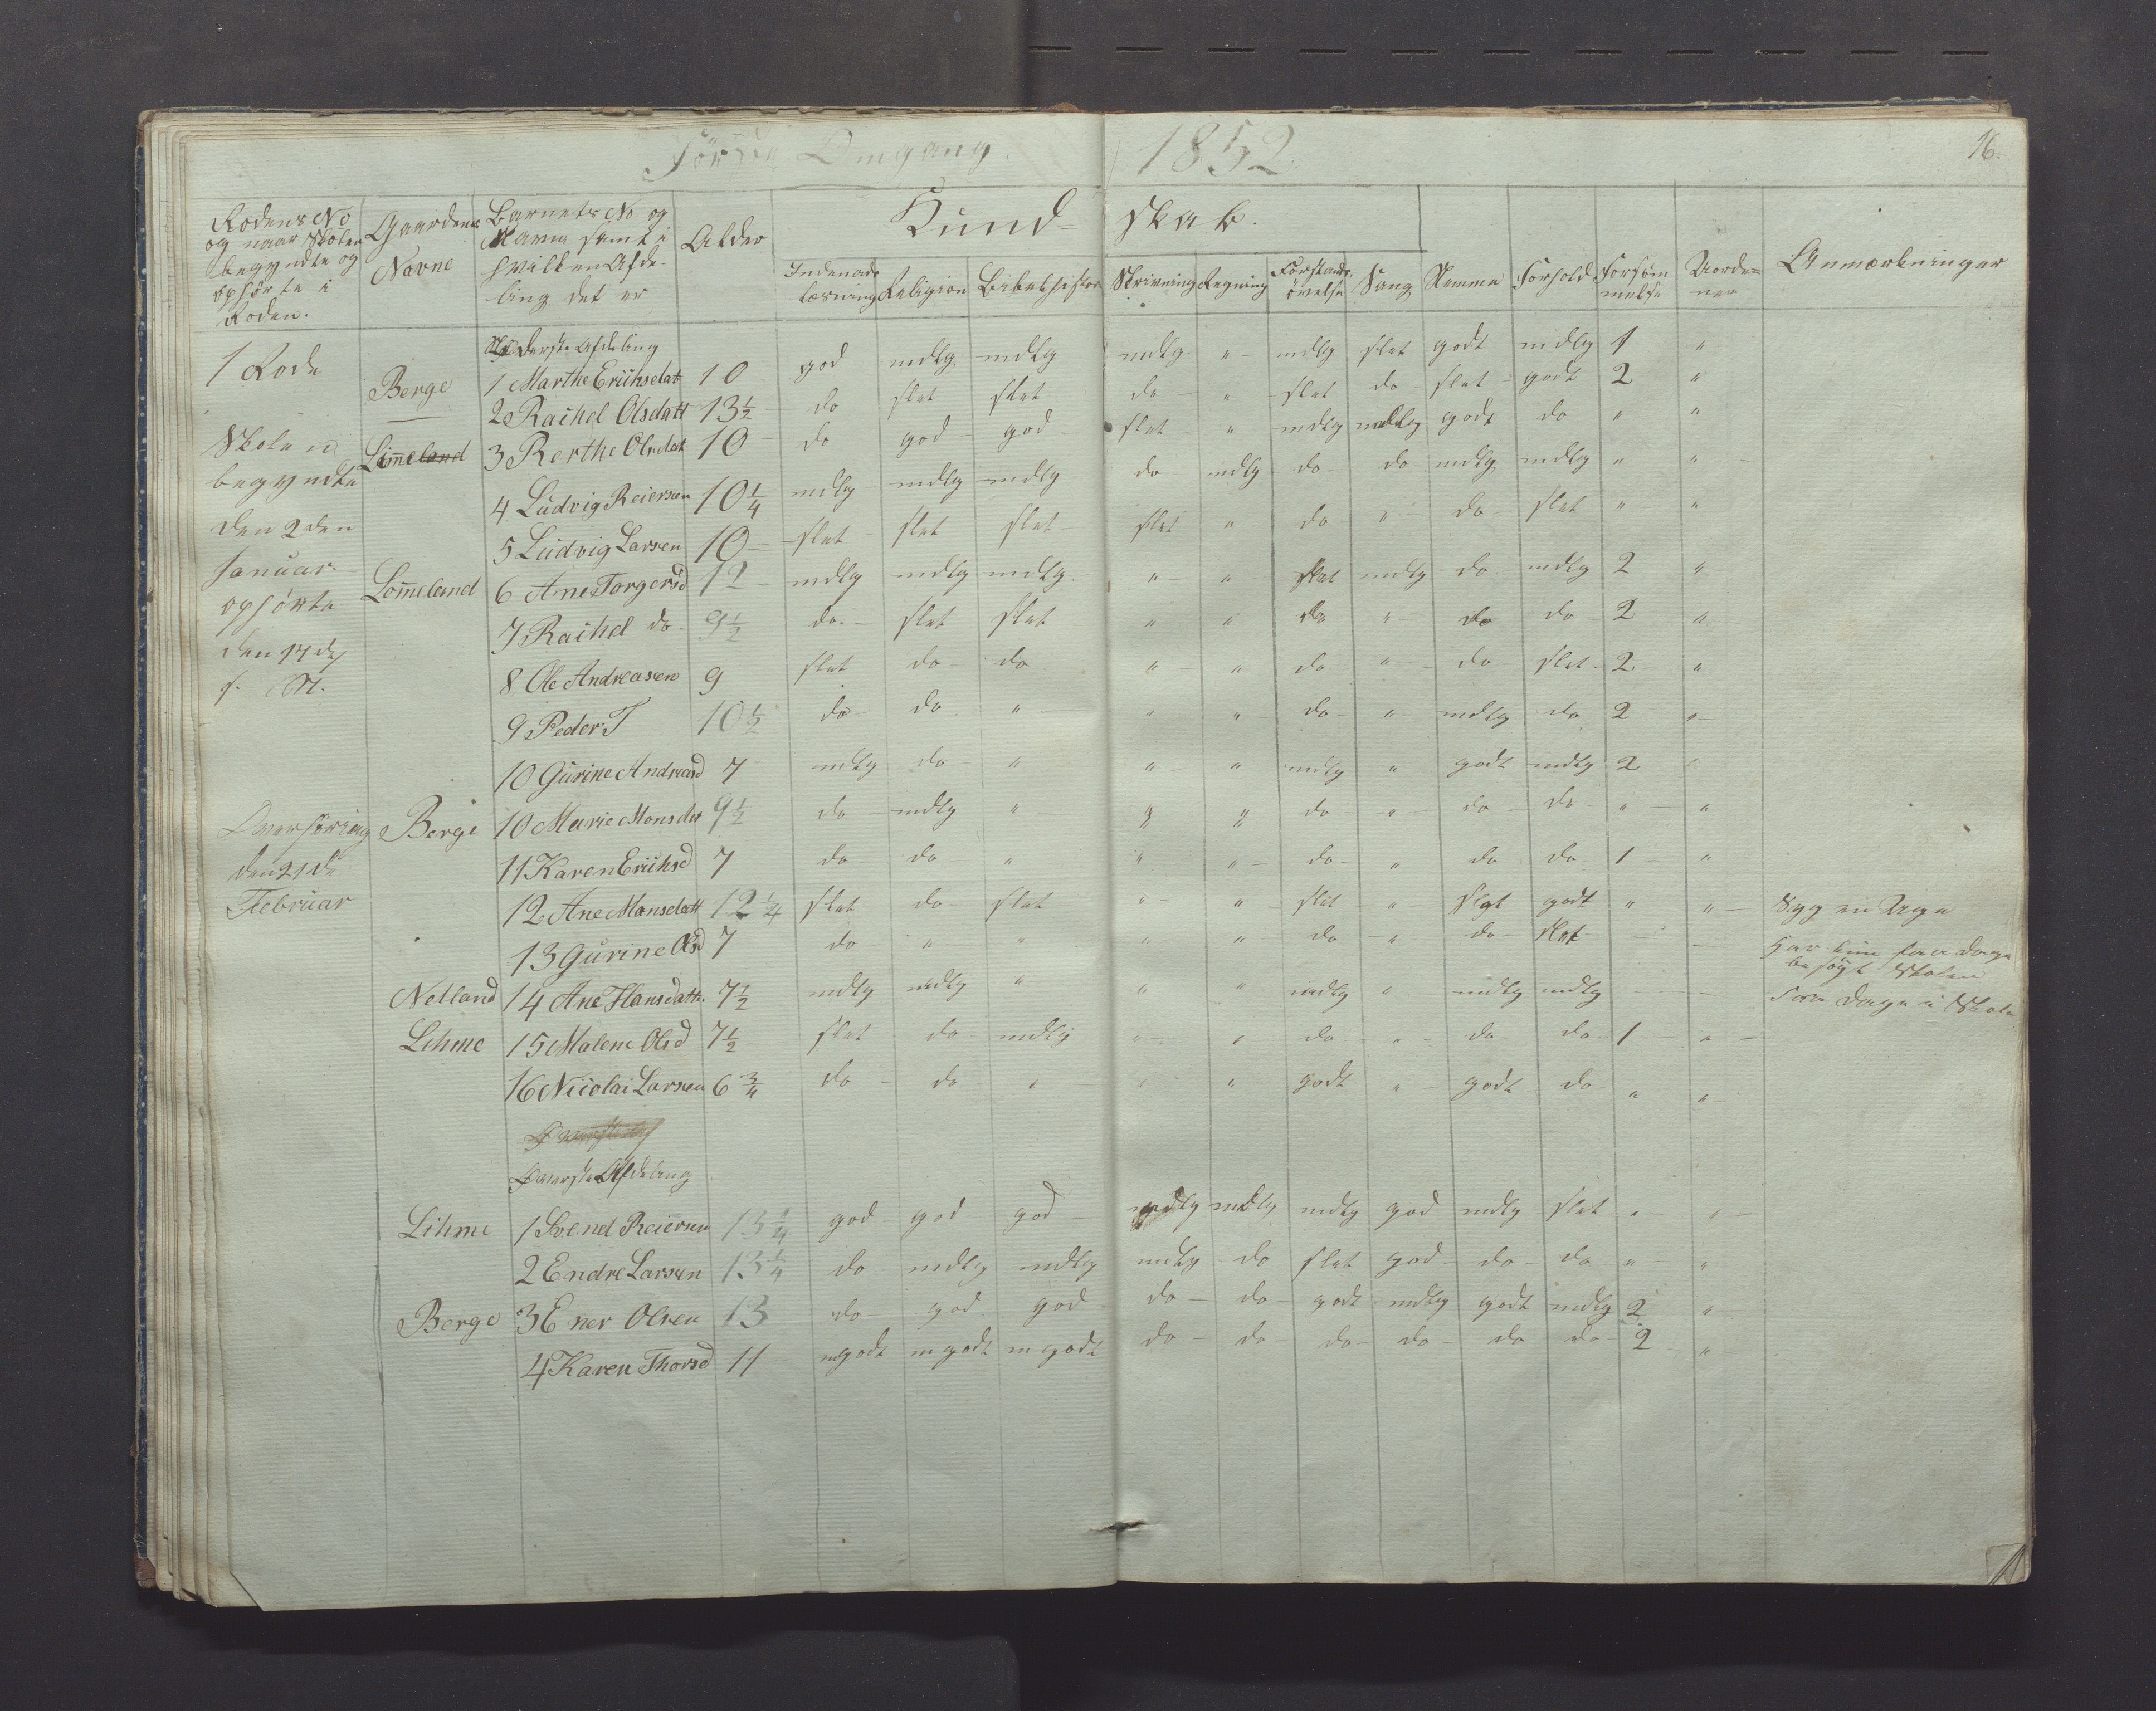 Første Omgang 1852. 16.
Rodens No og naar Skolen begyndte og ophørte i Roden. Gaardens Navne Barnets No og Navn samt i hvilken Afdeling det er Alder Kundskab. Indenadslæsning Religion Bibelhistorie Skrivning Regning Forstandsøvelse Sang Nemme Forhold Forsømmelse Uordener Anmærkninger
1 Rode Nederste Afdeling
Berge 1 Marthe Erichsdat 10 god mdlg mdlg mdlg " mdlg slet godt mdlg 1 "
— 2 Rachel Olsdatt 13½ do slet slet do " slet do slet godt 2 "
Skolen Limeland 3 Berthe Olsdat 10 do god god slet " mdlg mdlg godt do " "
begyndte 4 Ludvig Reiersen 10¼ mdlg mdlg mdlg do mdlg do do mdlg mdlg " "
den 2den 5 Ludvig Larsen 10 slet slet slet slet " do " do slet " "
Januar ophørte Lomeland 6 Ane Torgersd 12 mdlg mdlg mdlg " " slet mdlg do mdlg 2 "
den 17d 7 Rachel do 9½ do. slet slet " " do " do do 2 "
s. M. 8 Ole Andreasen 9 slet do do " " do " do slet 2 "
9 Peder T 10½ do do " " " do " mdlg do 2 "
10 Gurine Andreasd 7 mdlg do " " " mdlg " godt mdlg 2 "
Overhøring Berge 10 Marie Monsdat 9½ do mdlg " " " do " do do " "
den 21de 11 Karen Erichsd 7 do do " " " do " do do 1 "
Februar 12 Ane Monsdatt 12¼ slet do slet " " slet " slet godt " " Syg en Uge
13 Gurine Olsd 7 do " " " " do " do slet — — Har kun faa Dage besøgt Skolen
Nelland 14 Ane Hansdatt. 7½ mdlg mdlg " " " mdlg " mdlg mdlg — — Faa Dage i Skole
Lihme 15 Malene Olsd 7½ slet do mdlg " " do " do do 1 "
16 Nicolai Larsen 6¾ do do " " " godt " godt do " "
Øverste Afdeling
Lihme 1 Svend Reiersen 13¼ god god god mdlg mdlg mdlg god mdlg slet " "
2 Endre Larsen 13¼ do mdlg mdlg mdlg do slet god do do " "
Berge 3 Ener Olsen 13 do god god do do godt mdlg godt mdlg 2 "
4 Karen Thorsd 11 mgodt mgodt mgodt do do do do do do 2 "